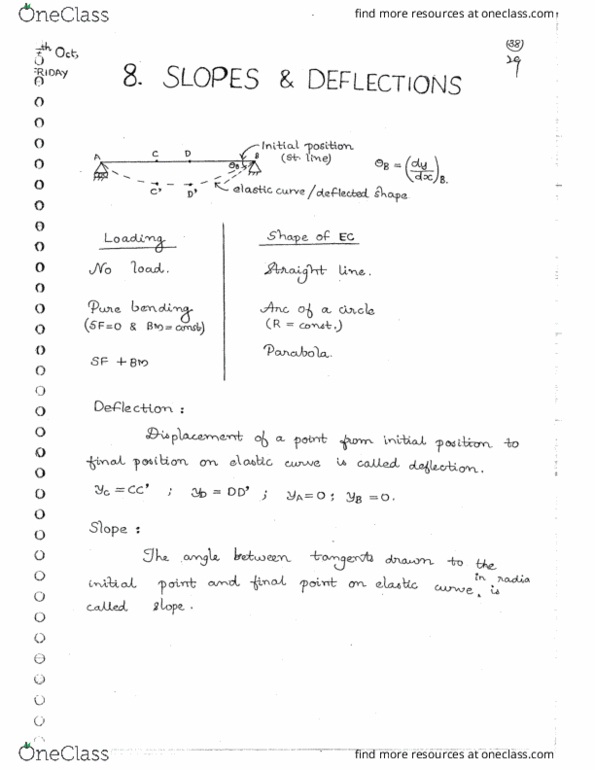 OneClass
find more resources at oneclass.com
7th Oct,
FRIDAY
(38)
29
8. SLOPES & DEFLECTIONS
A C D B
Initial position
(st. line)
θB
θB = (dy/dx)B.
C' D'
elastic curve/deflected shape
Loading Shape of EC
No load. Straight line.
Pure bending Arc of a circle
(SF=0 & BM=const) (R = const.)
SF + BM Parabola.
Deflection :
Displacement of a point from initial position to
final position on elastic curve is called deflection.
yC = CC' ; yD = DD' ; yA = 0 ; yB = 0.
Slope :
The angle between tangents drawn to the
initial point and final point on elastic curve, in radia is
called slope.
OneClass
find more resources at oneclass.com